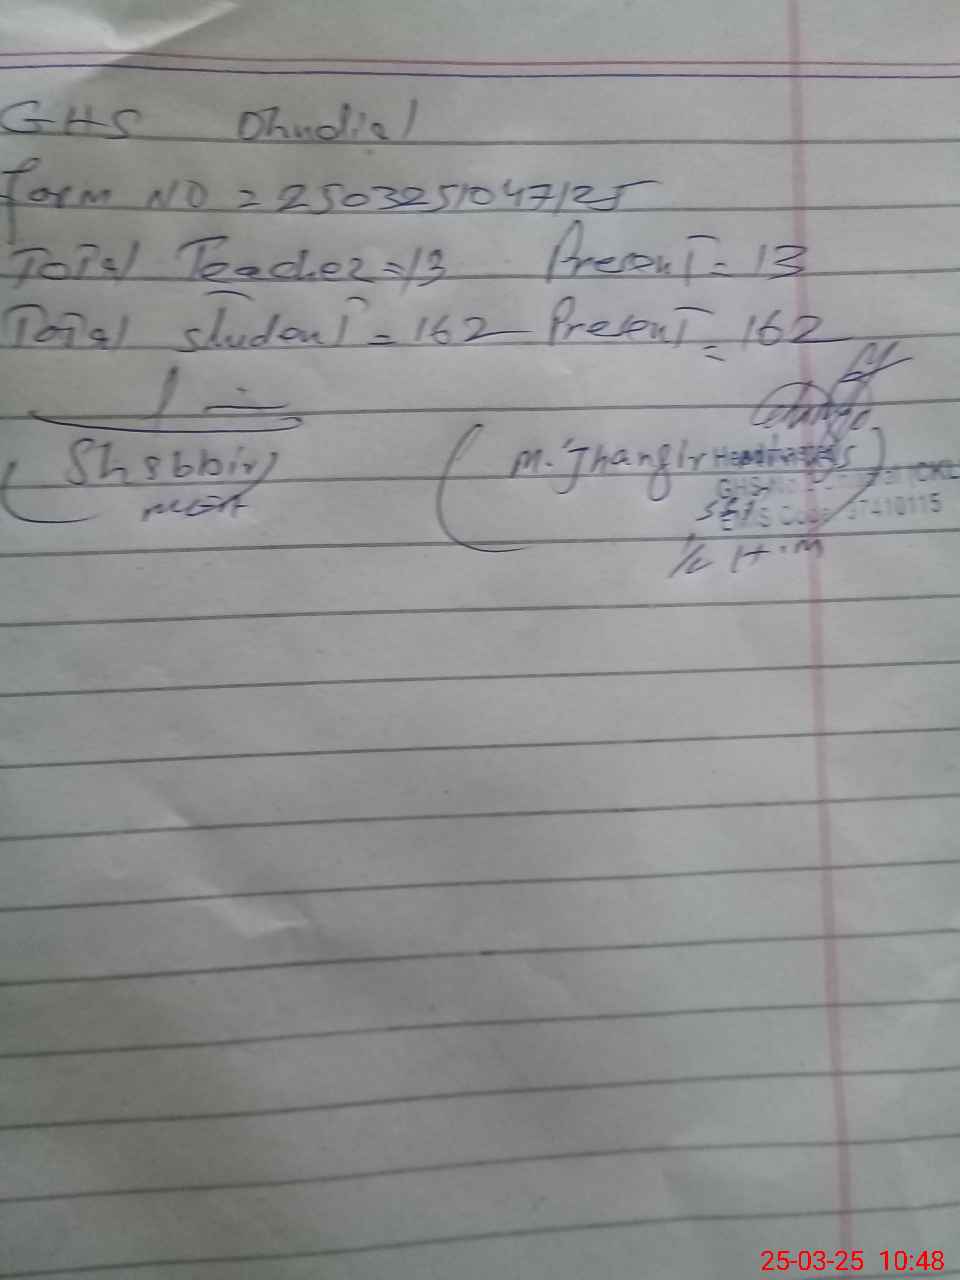 GHS Dhudial
Form NO = 2503251047125
Total Teacher = 13 Present = 13
Total student = 162 Present = 162
(Shabbir) (M. Jhangir)
Headmaster
GHS-No
SST
EMIS Code 37410115
I/c H.M
25-03-25 10:48